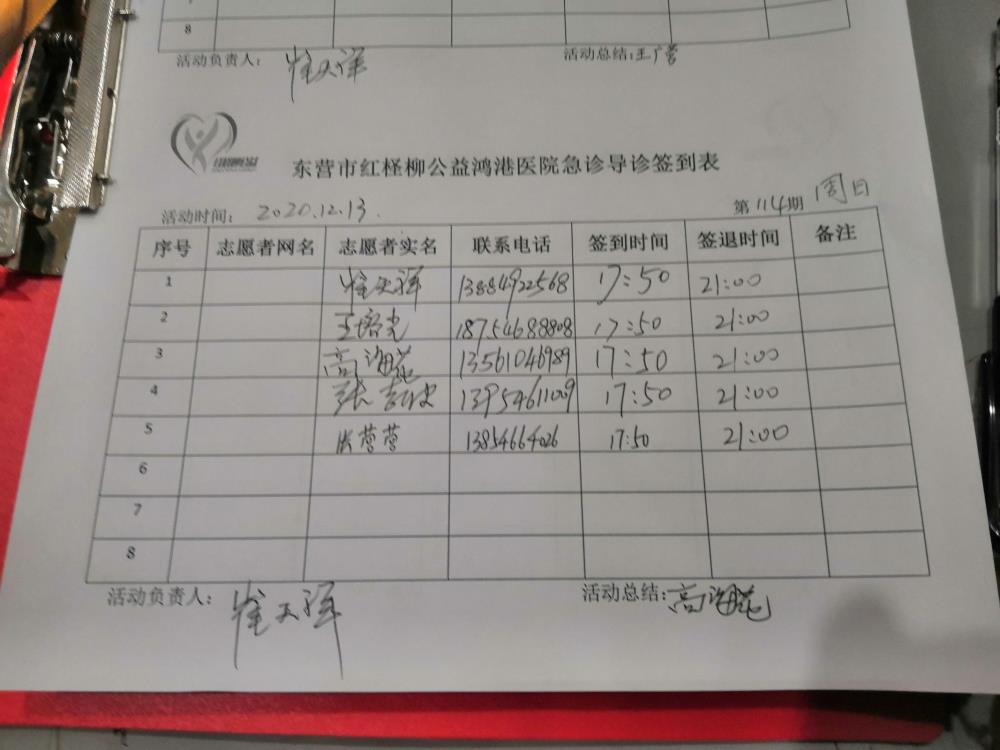 8
活动负责人： 崔天祥 活动总结:王广营
东营市红柽柳公益鸿港医院急诊导诊签到表
活动时间： 2020.12.13. 第 114 期 周日
序号 志愿者网名 志愿者实名 联系电话 签到时间 签退时间 备注
1 崔天祥 13884922568 17:50 21:00
2 王培光 18754688808 17:50 21:00
3 高海苑 13561046989 17:50 21:00
4 张 13954611009 17:50 21:00
5 张营营 13854664026 17:50 21:00
6
7
8
活动负责人： 崔天祥 活动总结:高海苑